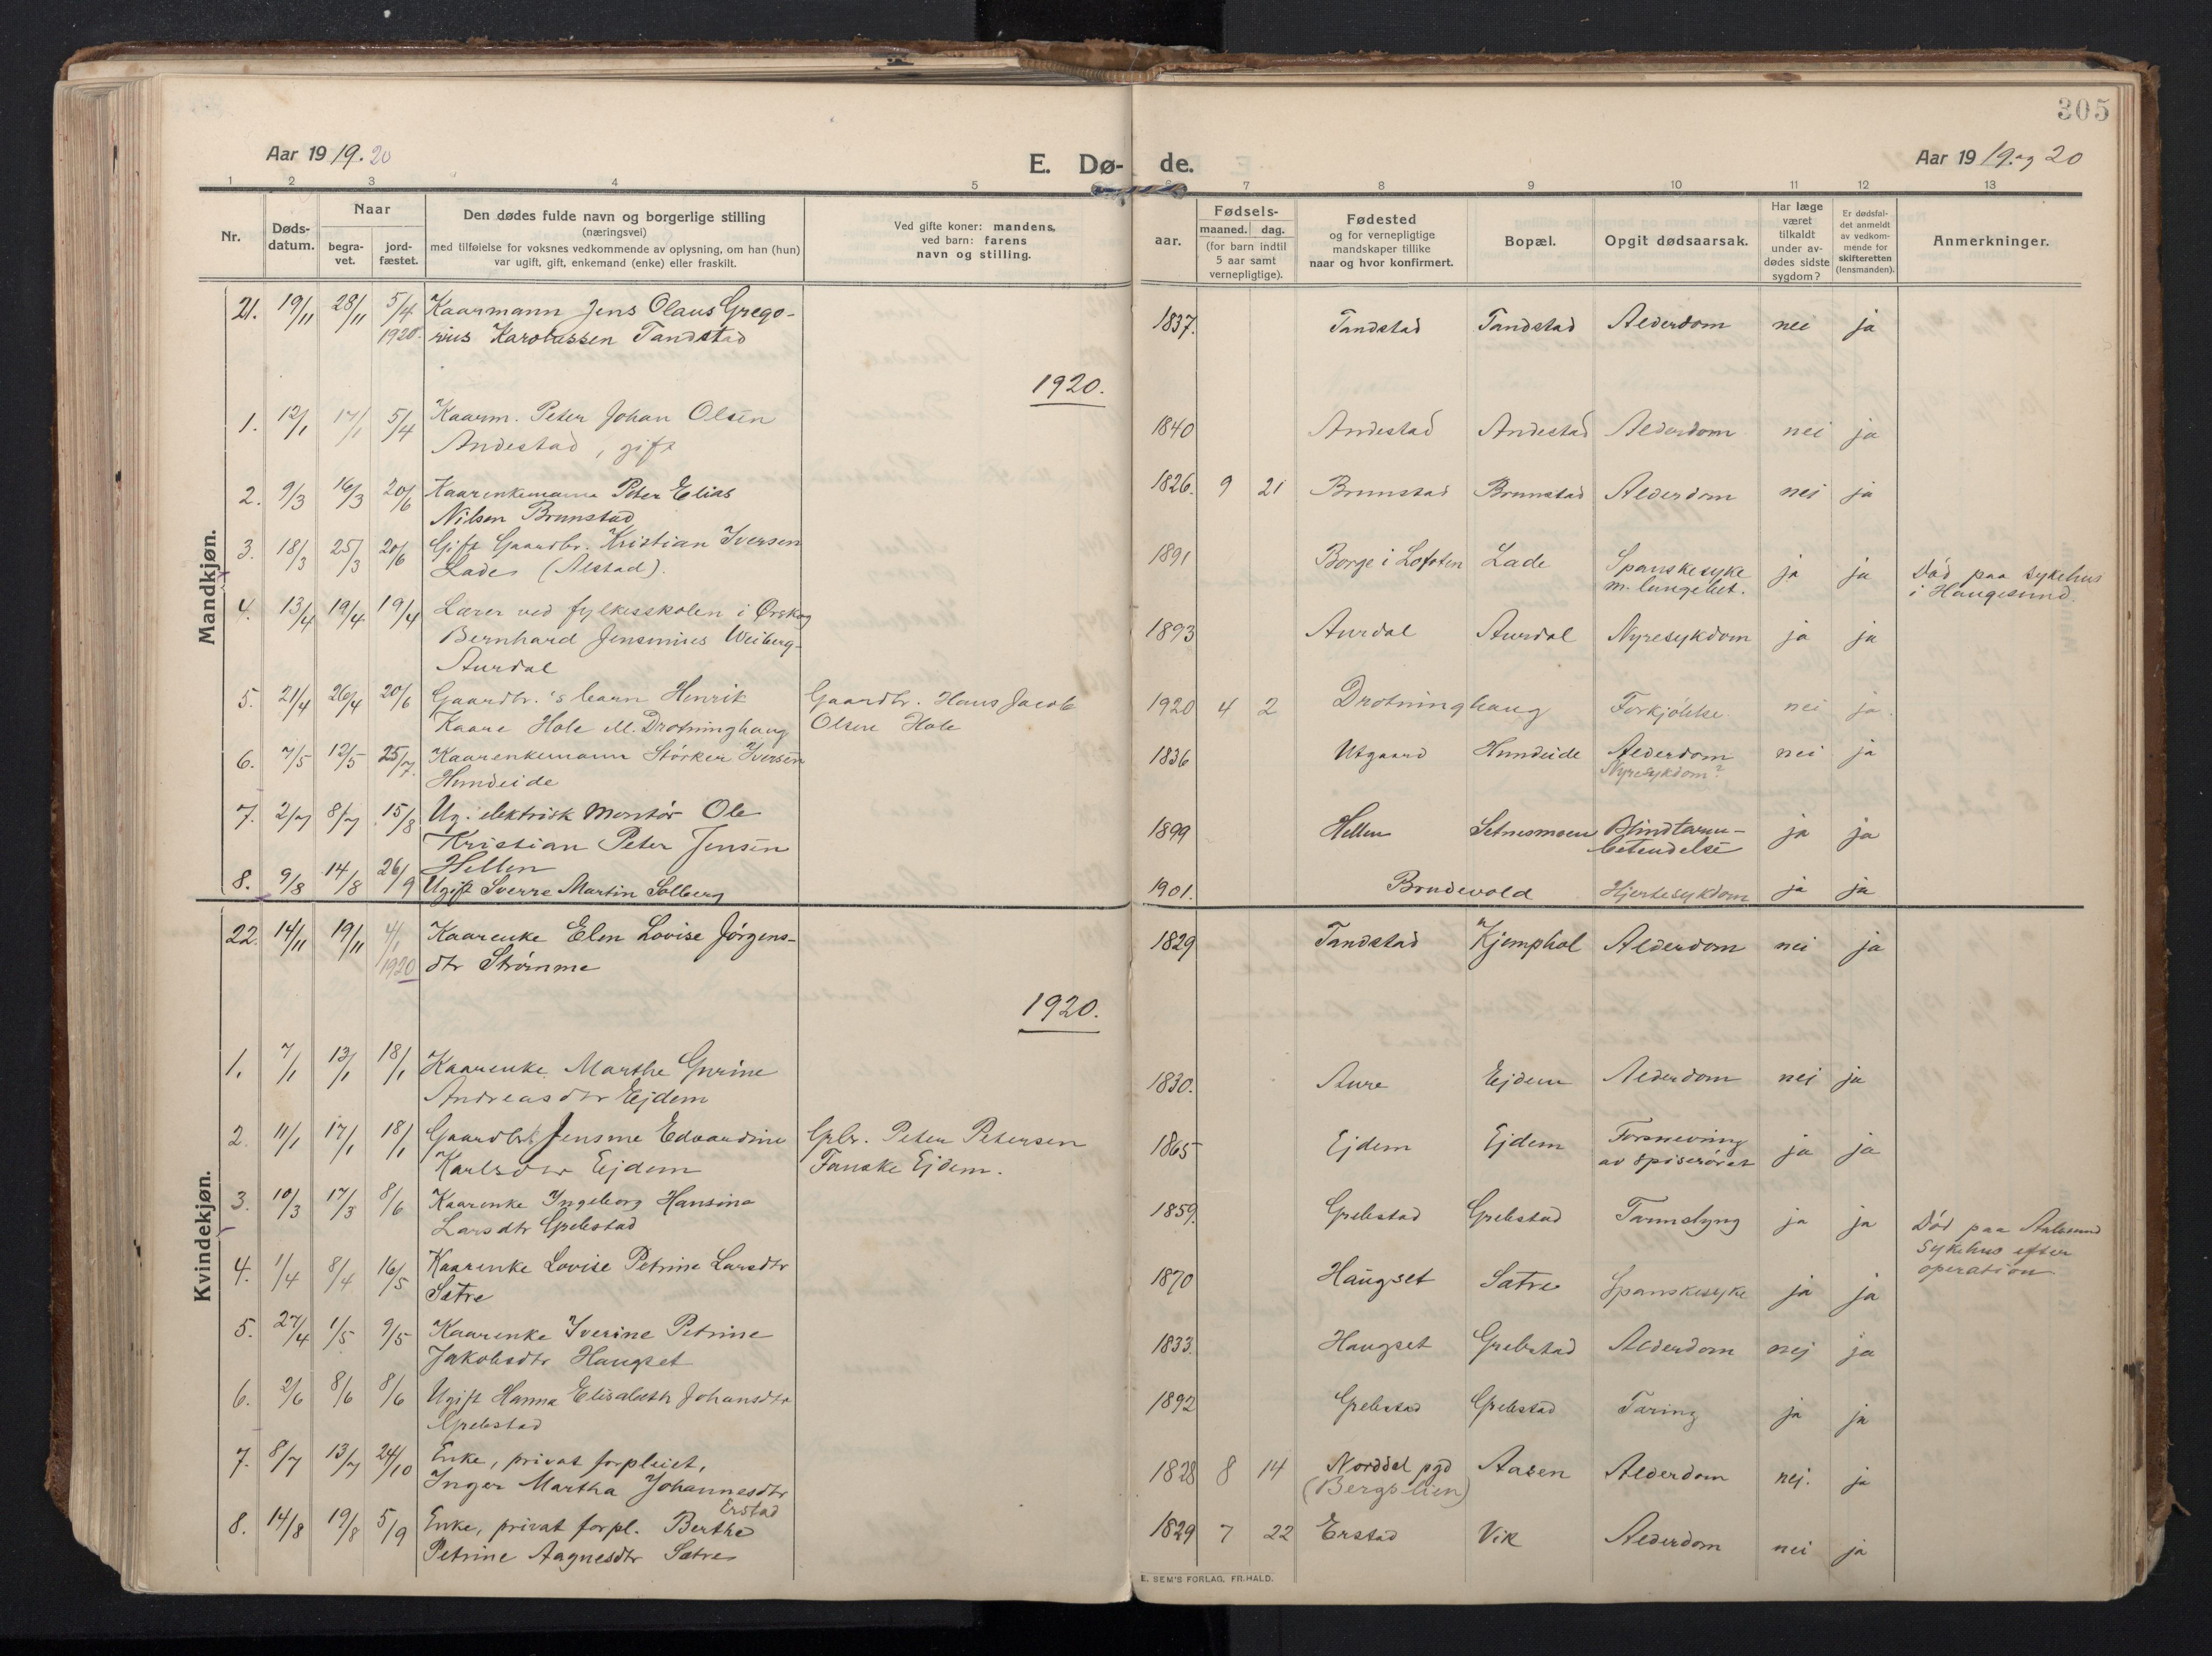 305
Aar 19 19. 20
E. Dø- de.
Aar 19 19. og 20
1 2 3 4 5 7 8 9 10 11 12 13
Nr.
Døds-
datum.
Naar
begra-
vet.
jord-
fæstet.
Den dødes fulde navn og borgerlige stilling
(næringsvei)
med tilføielse for voksnes vedkommende av oplysning, om han (hun)
var ugift, gift, enkemand (enke) eller fraskilt.
Ved gifte koner: mandens,
ved barn: farens
navn og stilling.
Fødsels-
aar.
maaned. dag.
(for barn indtil
5 aar samt
vernepligtige).
Fødested
og for vernepligtige
mandskaper tillike
naar og hvor konfirmert.
Bopæl.
Opgit dødsaarsak.
Har læge
været
tilkaldt
under av-
dødes sidste
sygdom?
Er dødsfal-
det anmeldt
av vedkom-
mende for
skifteretten
(lensmanden).
Anmerkninger.
Mandkjøn.
21. 19/11 28/11 5/4 Kaarmann Jens Olaus Grego- 1837. Tandstad Tandstad Alderdom nei ja
1920. rius Karolussen Tandstad
1920.
1. 12/1 17/1 5/4 Kaarm. Peter Johan Olsen 1840 Andestad Andestad Alderdom nei ja
Andestad, gift
2. 9/3 16/3 20/6 Kaarenkemann Peter Elias 1826. 9 21 Brunstad Brunstad Alderdom nei ja
Nilsen Brunstad
3. 18/3 25/3 20/6 Gift Gaardbr. Kristian Iversen 1891 Borge i Lofoten Lade Spanskesyke ja ja Død paa sykehus
Lade (Alstad). m. lungebet. i Haugesund.
4. 13/4 19/4 19/4 Lærer ved fylkesskolen i Ørskog 1893 Aurdal Aurdal Nyresykdom ja ja
Bernhard Jensenius Weiberg-
Aurdal
5. 21/4 26/4 20/6 Gaardbr.'s barn Henrik Gaardbr. Hans Jacob 1920 4 2 Drotninghaug Forkjølelse nei ja.
Kaare Hole al. Drotninghaug Olsen Hole
6. 7/5 12/5 25/7. Kaarenkemann Størker Iversen 1836 Utgaard Hundeide Alderdom nei ja
Hundeide Nyresykdom?
7. 2/7 8/7 15/8 Ug. elektrisk montør Ole 1899 Hellen Setnesmoen Blindtarm- ja ja
Kristian Peter Jensen betendelse
Hellen
8. 9/8 14/8 26/9 Ugift Sverre Martin Solberg 1901. Brudevold Hjertesykdom ja ja
Kvindekjøn.
22. 14/11 19/11 4/1 Kaarenke Elen Lovise Jørgens- 1829 Tandstad Kjemphol Alderdom nei ja
1920 dtr Strømme
1920.
1. 7/1 13/1 18/1 Kaarenke Marthe Gurine 1830. Aure Ejdem Alderdom nei ja
Andreasdtr Ejdem
2. 11/1 17/1 18/1 Gaardbrk Jensine Edvardine Gbr. Peter Petersen 1865 Ejdem Ejdem Forsnevring ja ja
Karlsdtr Ejdem Fauske Ejdem. av spiserøret
3. 10/3 17/3 8/6 Kaarenke Ingeborg Hansina 1859. Grebstad Grebstad Tarmslyng ja ja Død paa Aalesund
Larsdtr Grebstad sykehus efter
operation.
4. 1/4 8/4 16/5 Kaarenke Lovise Petrine Larsdtr 1870 Haugset Satre Spanskesyke ja ja
Satre
5. 27/4 1/5 9/5 Kaarenke Iverine Petrine 1833. Haugset Grebstad Alderdom nej ja
Jakobsdtr Haugset
6. 2/6 8/6 8/6 Ugift Hanna Elisabeth Johansdtr 1892 Grebstad Grebstad Tæring ja ja
Grebstad
7. 8/7 13/7 24/10 Enke, privat forpleiet, 1828 8 14 Norddal pgd Aasen Alderdom nej. ja
Inger Martha Johannesdtr (Bergslien)
Erstad
8. 14/8 19/8 5/9 Enke, privat forpl. Berthe 1829 7 22 Erstad Vik Alderdom nei ja
Petrine Aagnesdtr Satre
E. SEM'S FORLAG, FR.HALD.